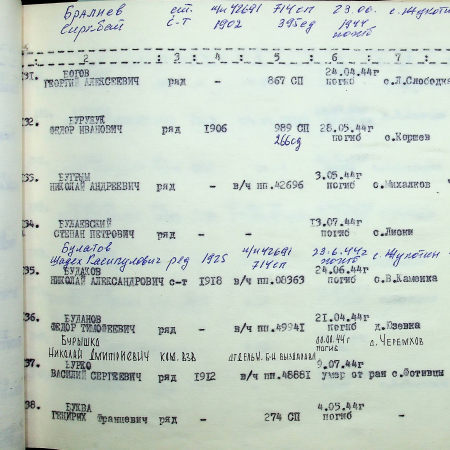 Бралиев ст. п/п 42691 714 сп 23.06. с. Жукотин
с-т 1902 395 сд 1944 погиб
: 2 : 3 : 4 : 5 : 6 : 7 :
31. БОГОВ 24.04.44г
ГЕОРГИЙ АЛЕКСЕЕВИЧ ряд - 867 СП погиб с.Л.Слободка
32. БУРУНУК
ФЕДОР ИВАНОВИЧ ряд 1906 989 СП 28.05.44г с.Коршев
266 сд погиб
33. БУГРЫМ 3.05.44г
НИКОЛАЙ АНДРЕЕВИЧ ряд - в/ч пп.42696 погиб с.Михалков
34. БУЛАЕВСКИЙ 13.07.44г
СТЕПАН ПЕТРОВИЧ ряд - - погиб с.Лиски
Булатов п/п 42691 23.6.44г с. Жукотин
ряд 1925 714 сп погиб
35. БУЛАКОВ 24.06.44г
НИКОЛАЙ АЛЕКСАНДРОВИЧ с-т 1918 в/ч пп.08363 погиб с.В.Каменка
36. БУЛАНОВ 21.04.44г
ФЕДОР ТИМОФЕЕВИЧ ряд - в/ч пп.49941 погиб д.Юзевка
БУРЫШКО 00.00.44г д. ЧЕРЕМХОВ
НИКОЛАЙ ДМИТРИЕВИЧ КОМ. ВЗВ. погиб
37. БУРКО 9.07.44г
ВАСИЛИЙ СЕРГЕЕВИЧ ряд 1912 в/ч пп.48881 умер от ран с.Фотивцы
38. БУКВА 4.05.44г
ГЕНЦИРИХ Францевич ряд - 274 СП погиб -